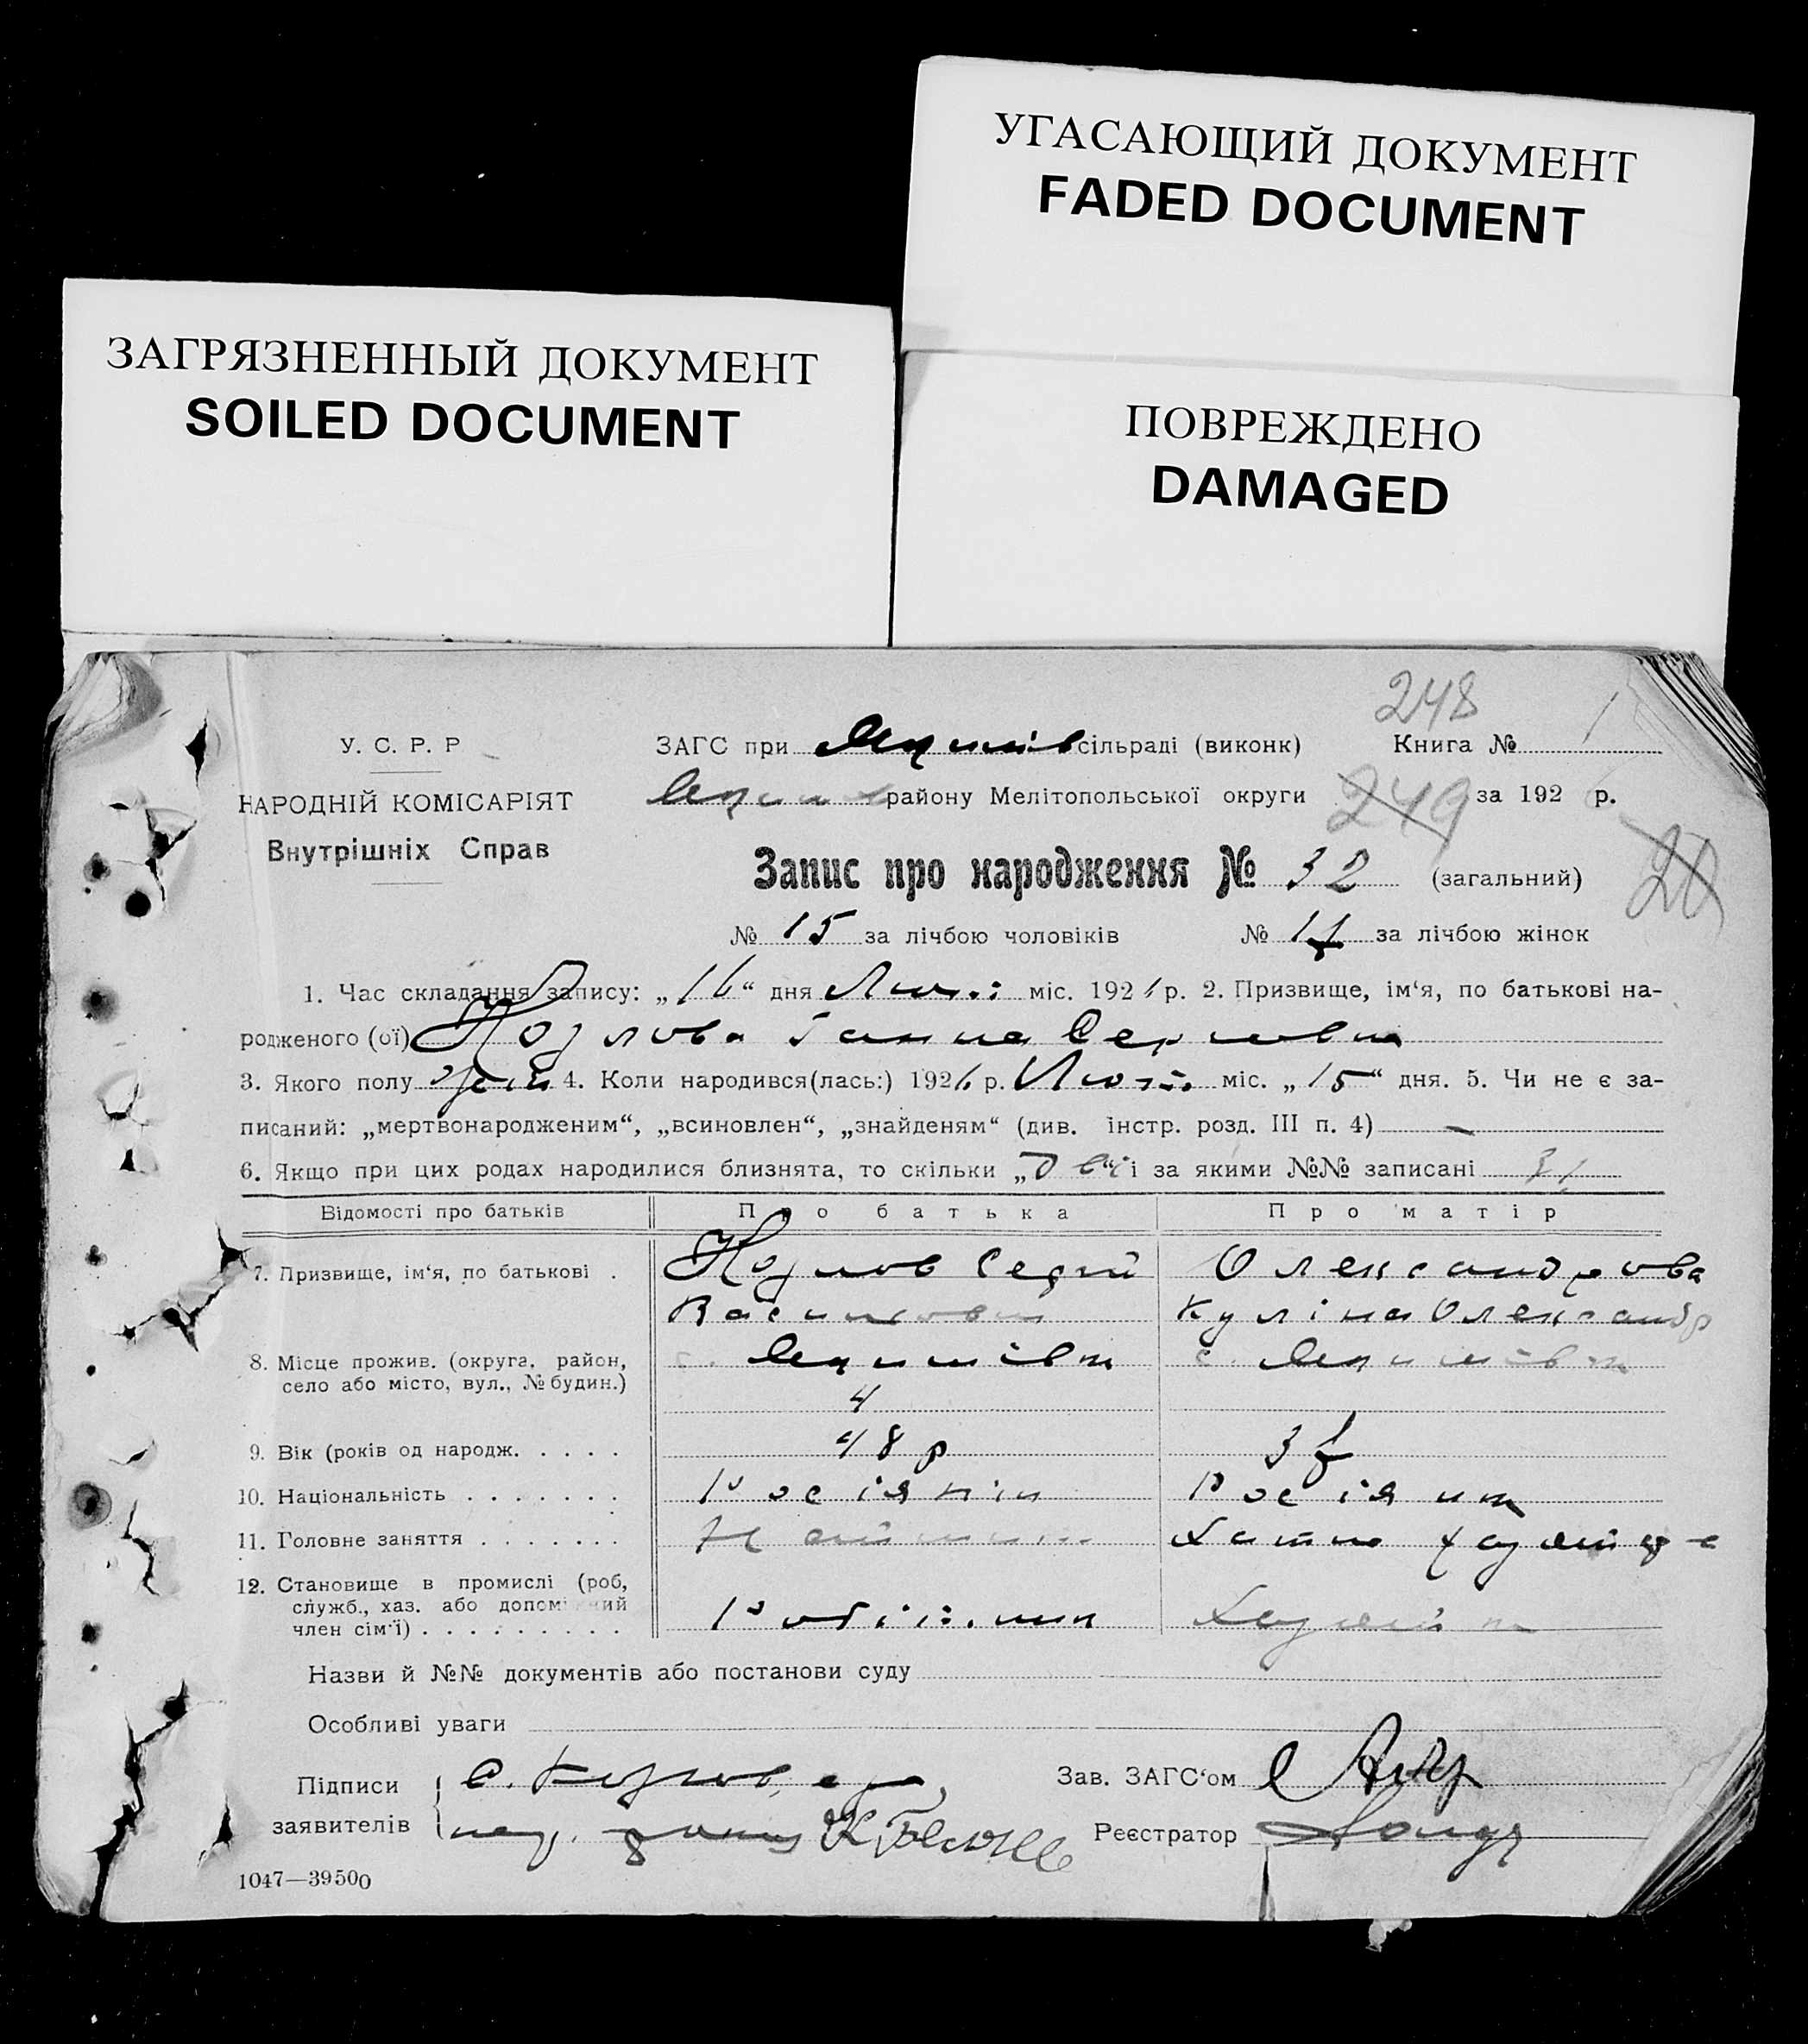 УГАСАЮЩИЙ ДОКУМЕНТ
FADED DOCUMENT
ЗАГРЯЗНЕННЫЙ ДОКУМЕНТ
SOILED DOCUMENT
ПОВРЕЖДЕНО
DAMAGED
248
У. С. Р. Р
ЗАГС при сільраді (виконк) Книга № 1
НАРОДНІЙ КОМІСАРІЯТ
району Мелітопольської округи 249 за 192 р.
Внутрішніх Справ
Запис про народження № 32 (загальний) 20
№ 15 за лічбою чоловіків № 17 за лічбою жінок
1. Час складання запису: „16“ дня міс. 1926 р. 2. Призвище, ім‘я, по батькові на-
родженого (ої) Козлова Ганна
3. Якого полу жін 4. Коли народився(лась:) 1926 р. міс. „15“ дня. 5. Чи не є за-
писаний: „мертвонародженим“, „всиновлен“, „знайденям“ (див. інстр. розд. III п. 4) —
6. Якщо при цих родах народилися близнята, то скільки „Двє“ і за якими №№ записані 31
Відомості про батьків
Про батька
Про матір
7. Призвище, ім‘я, по батькові .
Козлов Сергій
Олександрова
Куліна Олександр
8. Місце прожив. (округа, район,
село або місто, вул., № будин.)
с.
с.
4
9. Вік (років од народж. . . . .
48 р
37
10. Національність . . . . . . .
Росіянин
Росіянк
11. Головне заняття . . . . . . .
Хатнє
12. Становище в промислі (роб,
служб., хаз. або допоміжний
член сім‘ї) . . . . . . . . .
Назви й №№ документів або постанови суду
Особливі уваги
Підписи
заявителів
С. Козлов,
Зав. ЗАГС‘ом
Реєстратор
1047—39500